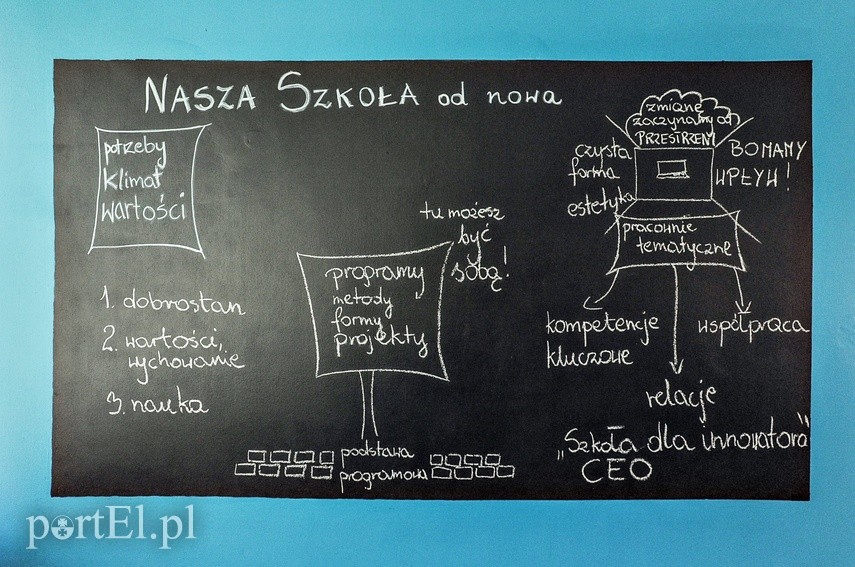 NASZA SZKOŁA od nowa
potrzeby
klimat
wartości
1. dobrostan
2. wartości,
wychowanie
3. nauka
tu możesz
być
sobą!
programy
metody
formy
projekty
podstawa
programowa
zmianę
zaczynamy od
PRZESTRZENI
czysta
forma
estetyka
BO MAMY
WPŁYW!
pracownie
tematyczne
kompetencje
kluczowe
współpraca
relacje
„Szkoła dla innowatora”
CEO
portEl.pl